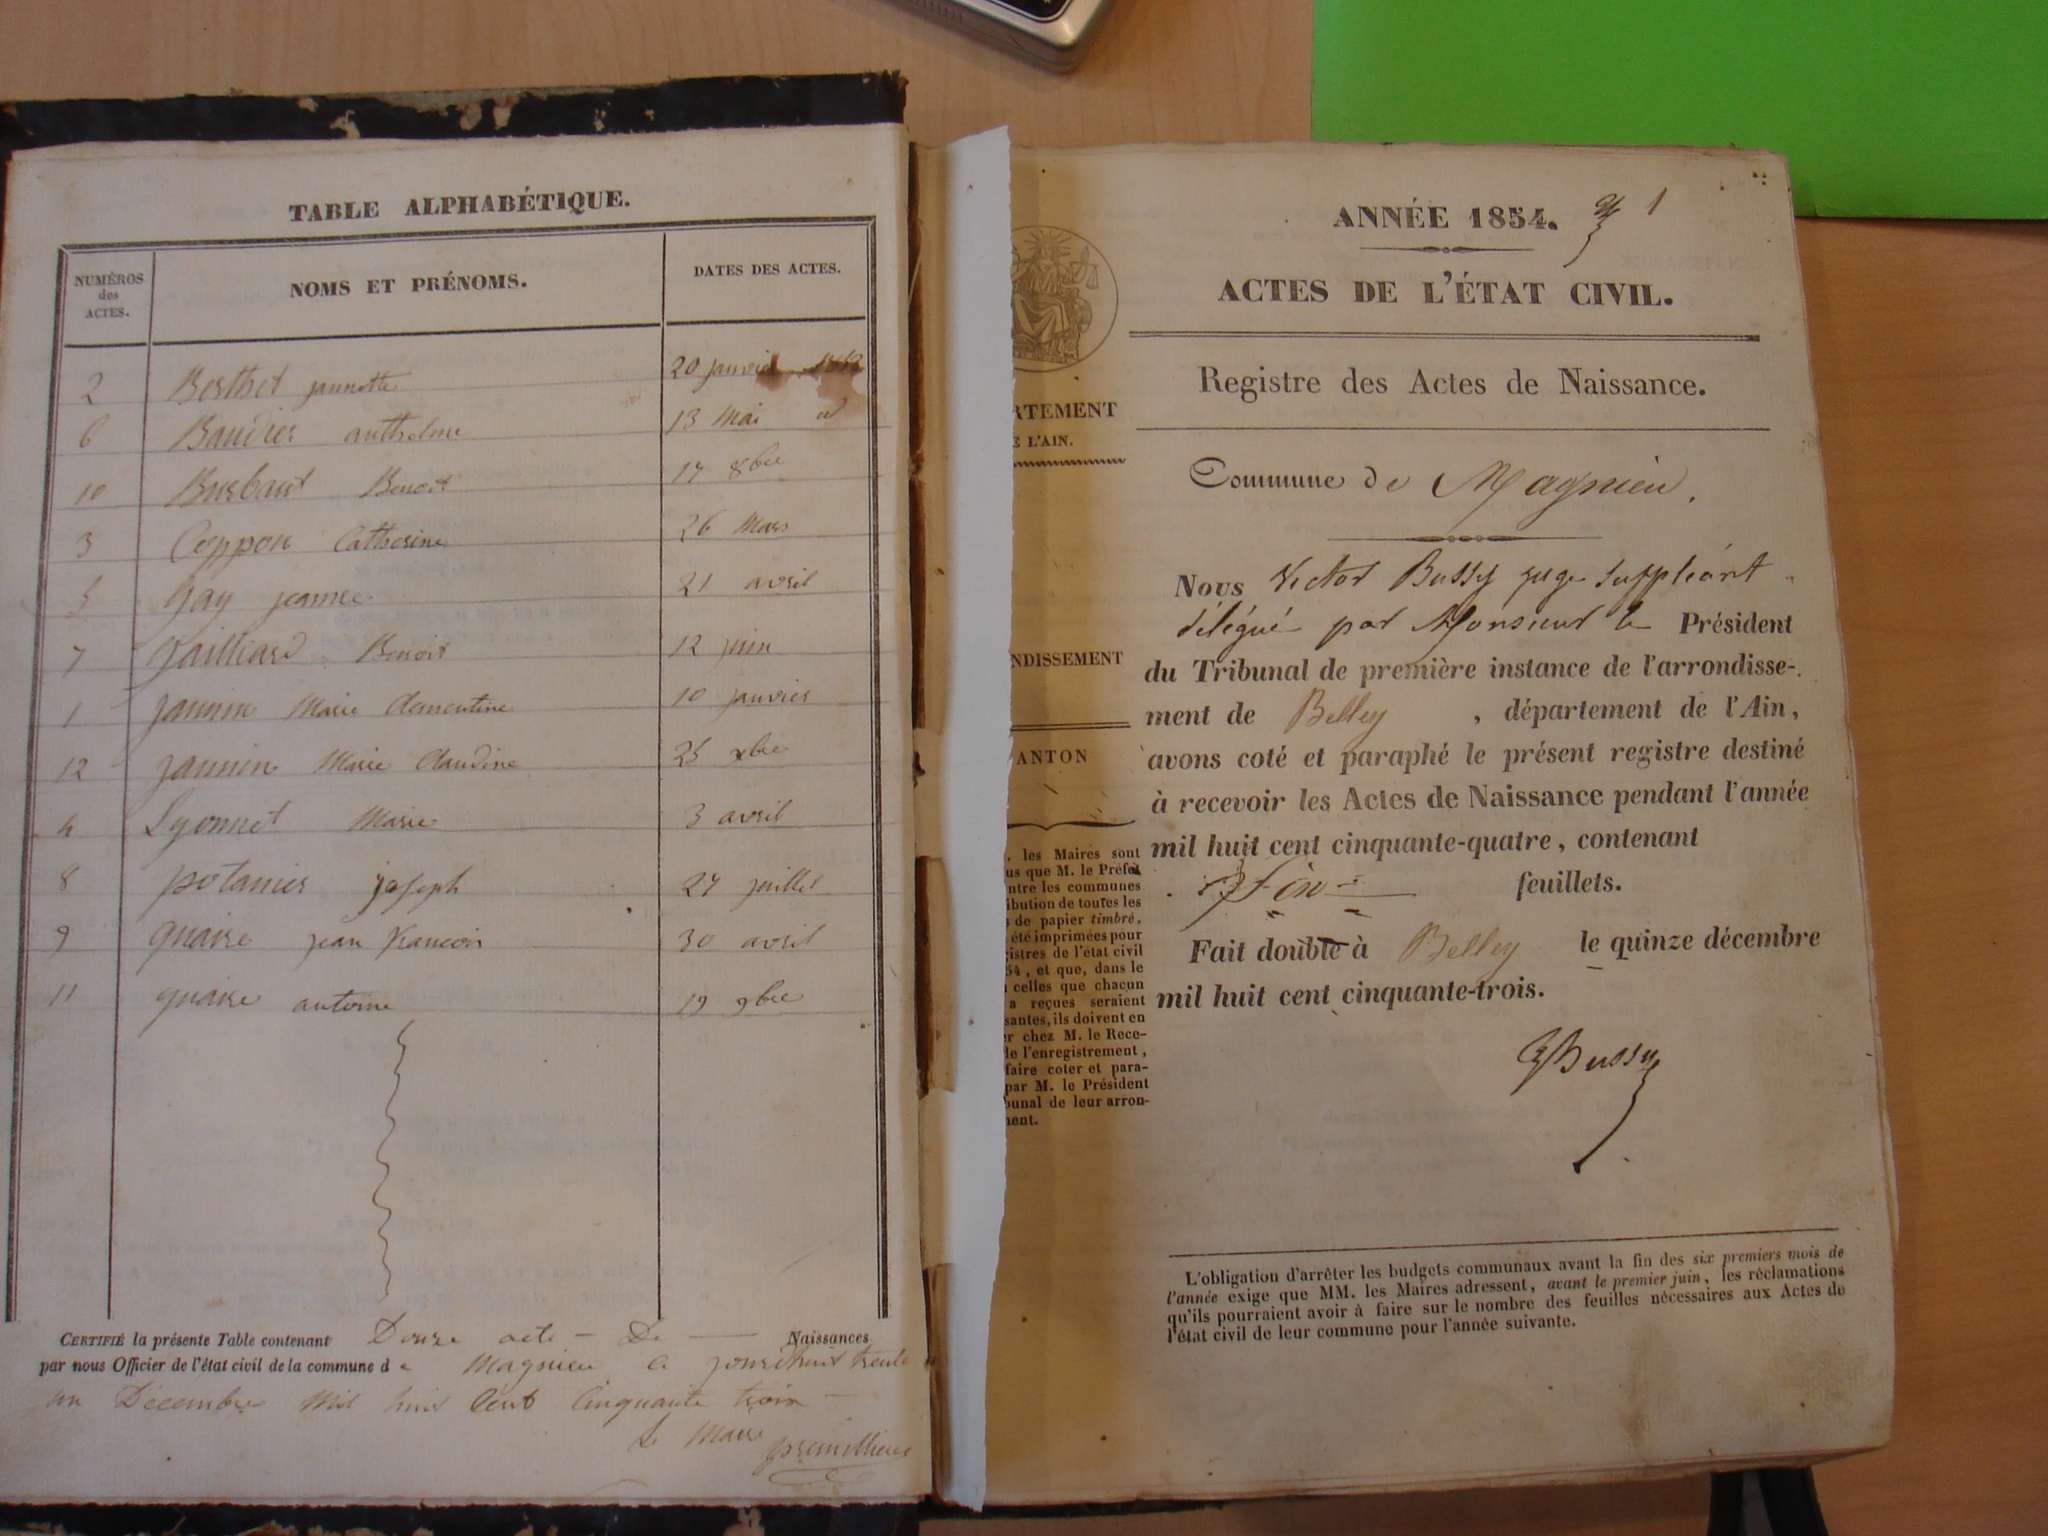 TABLE ALPHABÉTIQUE.
NUMÉROS des ACTES. NOMS ET PRÉNOMS. DATES DES ACTES.
2 Berthet jannette 20 janvier
6 Baudier anthelme 13 Mai
10 Burbaut Benoit 17 8bre
3 Coppon Catherine 26 Mars
5 Gay jeanne 21 avril
7 Jailliard Benoit 12 juin
1 jannin Marie Clementine 10 janvier
12 jannin Marie Claudine 25 xbre
4 Lyonnet Marie 3 avril
8 potanier joseph 27 juillet
9 quaire jean francois 30 avril
11 quaire antoine 19 9bre
CERTIFIÉ la présente Table contenant Douze acte - De Naissances
par nous Officier de l'état civil de la commune de Magnieu ce jourdhui trente
un Décembre mil huit Cent Cinquante trois
Le Maire
ANNÉE 1854. 1
ACTES DE L'ÉTAT CIVIL.
Registre des Actes de Naissance.
RTEMENT
E L'AIN.
Commune de Magnieu.
Nous Victor Bussy juge suppléant
délégué par Monsieur le Président
du Tribunal de première instance de l'arrondisse-
ment de Belley, département de l'Ain,
avons coté et paraphé le présent registre destiné
à recevoir les Actes de Naissance pendant l'année
mil huit cent cinquante-quatre, contenant
feuillets.
Fait double à Belley le quinze décembre
mil huit cent cinquante-trois.
Bussy
NDISSEMENT
ANTON
. les Maires sont
us que M. le Préfet
ntre les communes
ibution de toutes les
s de papier timbré,
été imprimées pour
gistres de l'état civil
54, et que, dans le
celles que chacun
a reçues seraient
santes, ils doivent en
er chez M. le Rece-
de l'enregistrement,
faire coter et para-
par M. le Président
bunal de leur arron-
ment.
L'obligation d'arrêter les budgets communaux avant la fin des six premiers mois de
l'année exige que MM. les Maires adressent, avant le premier juin, les réclamations
qu'ils pourraient avoir à faire sur le nombre des feuilles nécessaires aux Actes de
l'état civil de leur commune pour l'année suivante.